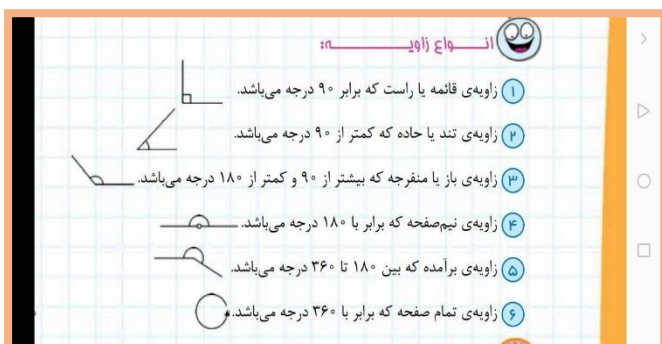 انواع زاویه:
۱ زاویه‌ی قائمه یا راست که برابر ۹۰ درجه می‌باشد.
۲ زاویه‌ی تند یا حاده که کمتر از ۹۰ درجه می‌باشد.
۳ زاویه‌ی باز یا منفرجه که بیشتر از ۹۰ و کمتر از ۱۸۰ درجه می‌باشد.
۴ زاویه‌ی نیم‌صفحه که برابر با ۱۸۰ درجه می‌باشد.
۵ زاویه‌ی برآمده که بین ۱۸۰ تا ۳۶۰ درجه می‌باشد.
۶ زاویه‌ی تمام صفحه که برابر با ۳۶۰ درجه می‌باشد.